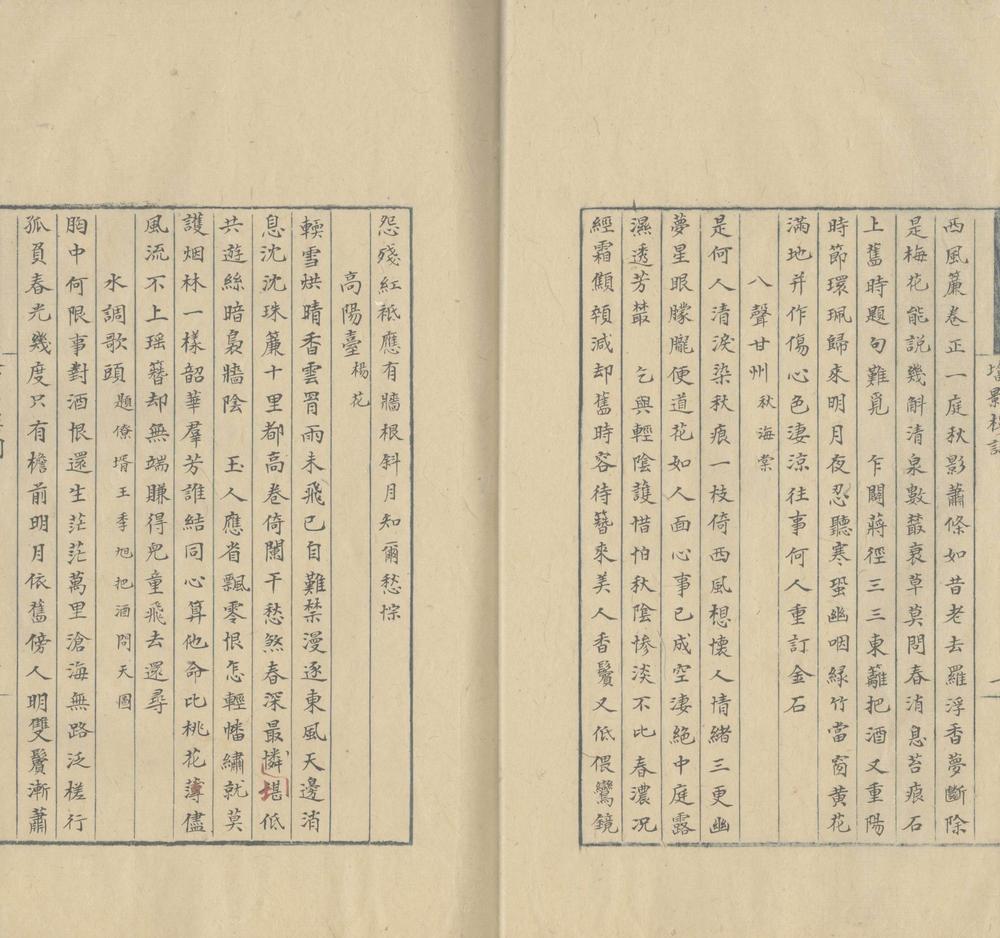 西風簾卷正一庭秋影蕭條如昔老去羅浮香夢斷除
是梅花能説幾斛清泉數叢衰草莫問春消息苔痕石
上舊時題句難覓　乍闢蔣徑三三東籬把酒又重陽
時節環珮歸來明月夜忍聽寒蛩幽咽緑竹當窗黄花
滿地并作傷心色淒涼往事何人重訂金石
八聲甘州 秋海棠
是何人清淚染秋痕一枝倚西風想懷人情緒三更幽
夢星眼朦朧便道花如人面心事已成空淒絶中庭露
濕透芳叢　乞與輕陰護惜怕秋陰惨淡不比春濃况
經霜顦顇減却舊時容待簪來美人香鬢又低偎鸞鏡
怨殘紅祗應有牆根斜月知爾愁悰
高陽臺 楊花
輭雪烘晴香雲罥雨未飛已自難禁漫逐東風天邊消
息沈沈珠簾十里都高卷倚闌干愁煞春深最憐堪低
共遊絲暗裊牆陰　玉人應省飄零恨怎輕幡繡就莫
護烟林一樣韶華羣芳誰結同心算他命比桃花薄儘
風流不上瑶簪却無端賺得兒童飛去還尋
水調歌頭 題僚壻王季旭把酒問天圖
胸中何限事對酒恨還生茫茫萬里滄海無路泛槎行
孤負春光幾度只有檐前明月依舊傍人明雙鬢漸蕭